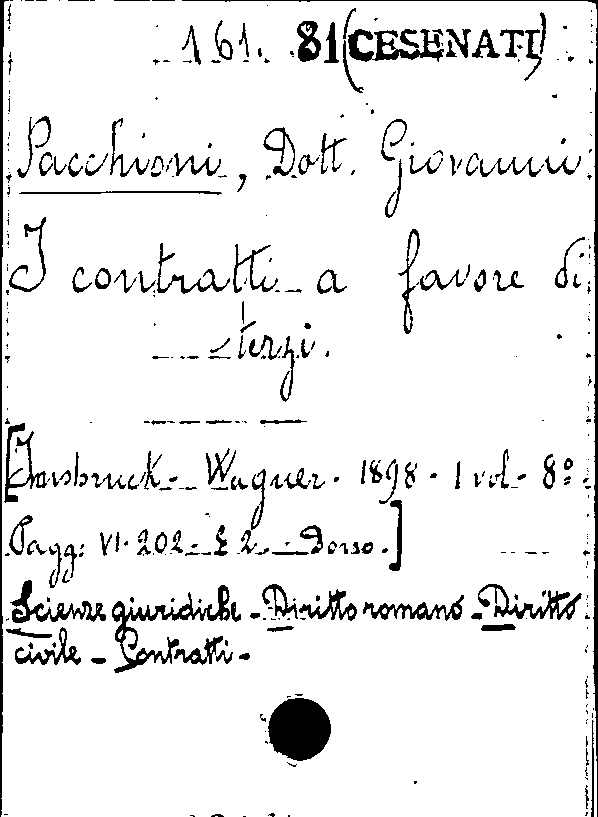 161. 81 (CESENATI)
Pacchioni, Dott. Giovanni
I contratti a favore di
terzi.
[Innsbruck - Wagner - 1898 - 1 vol - 8º -
Pagg: VI-202 - £ 2 - Dorso.]
Scienze giuridiche - Diritto romano - Diritto
civile - Contratti -